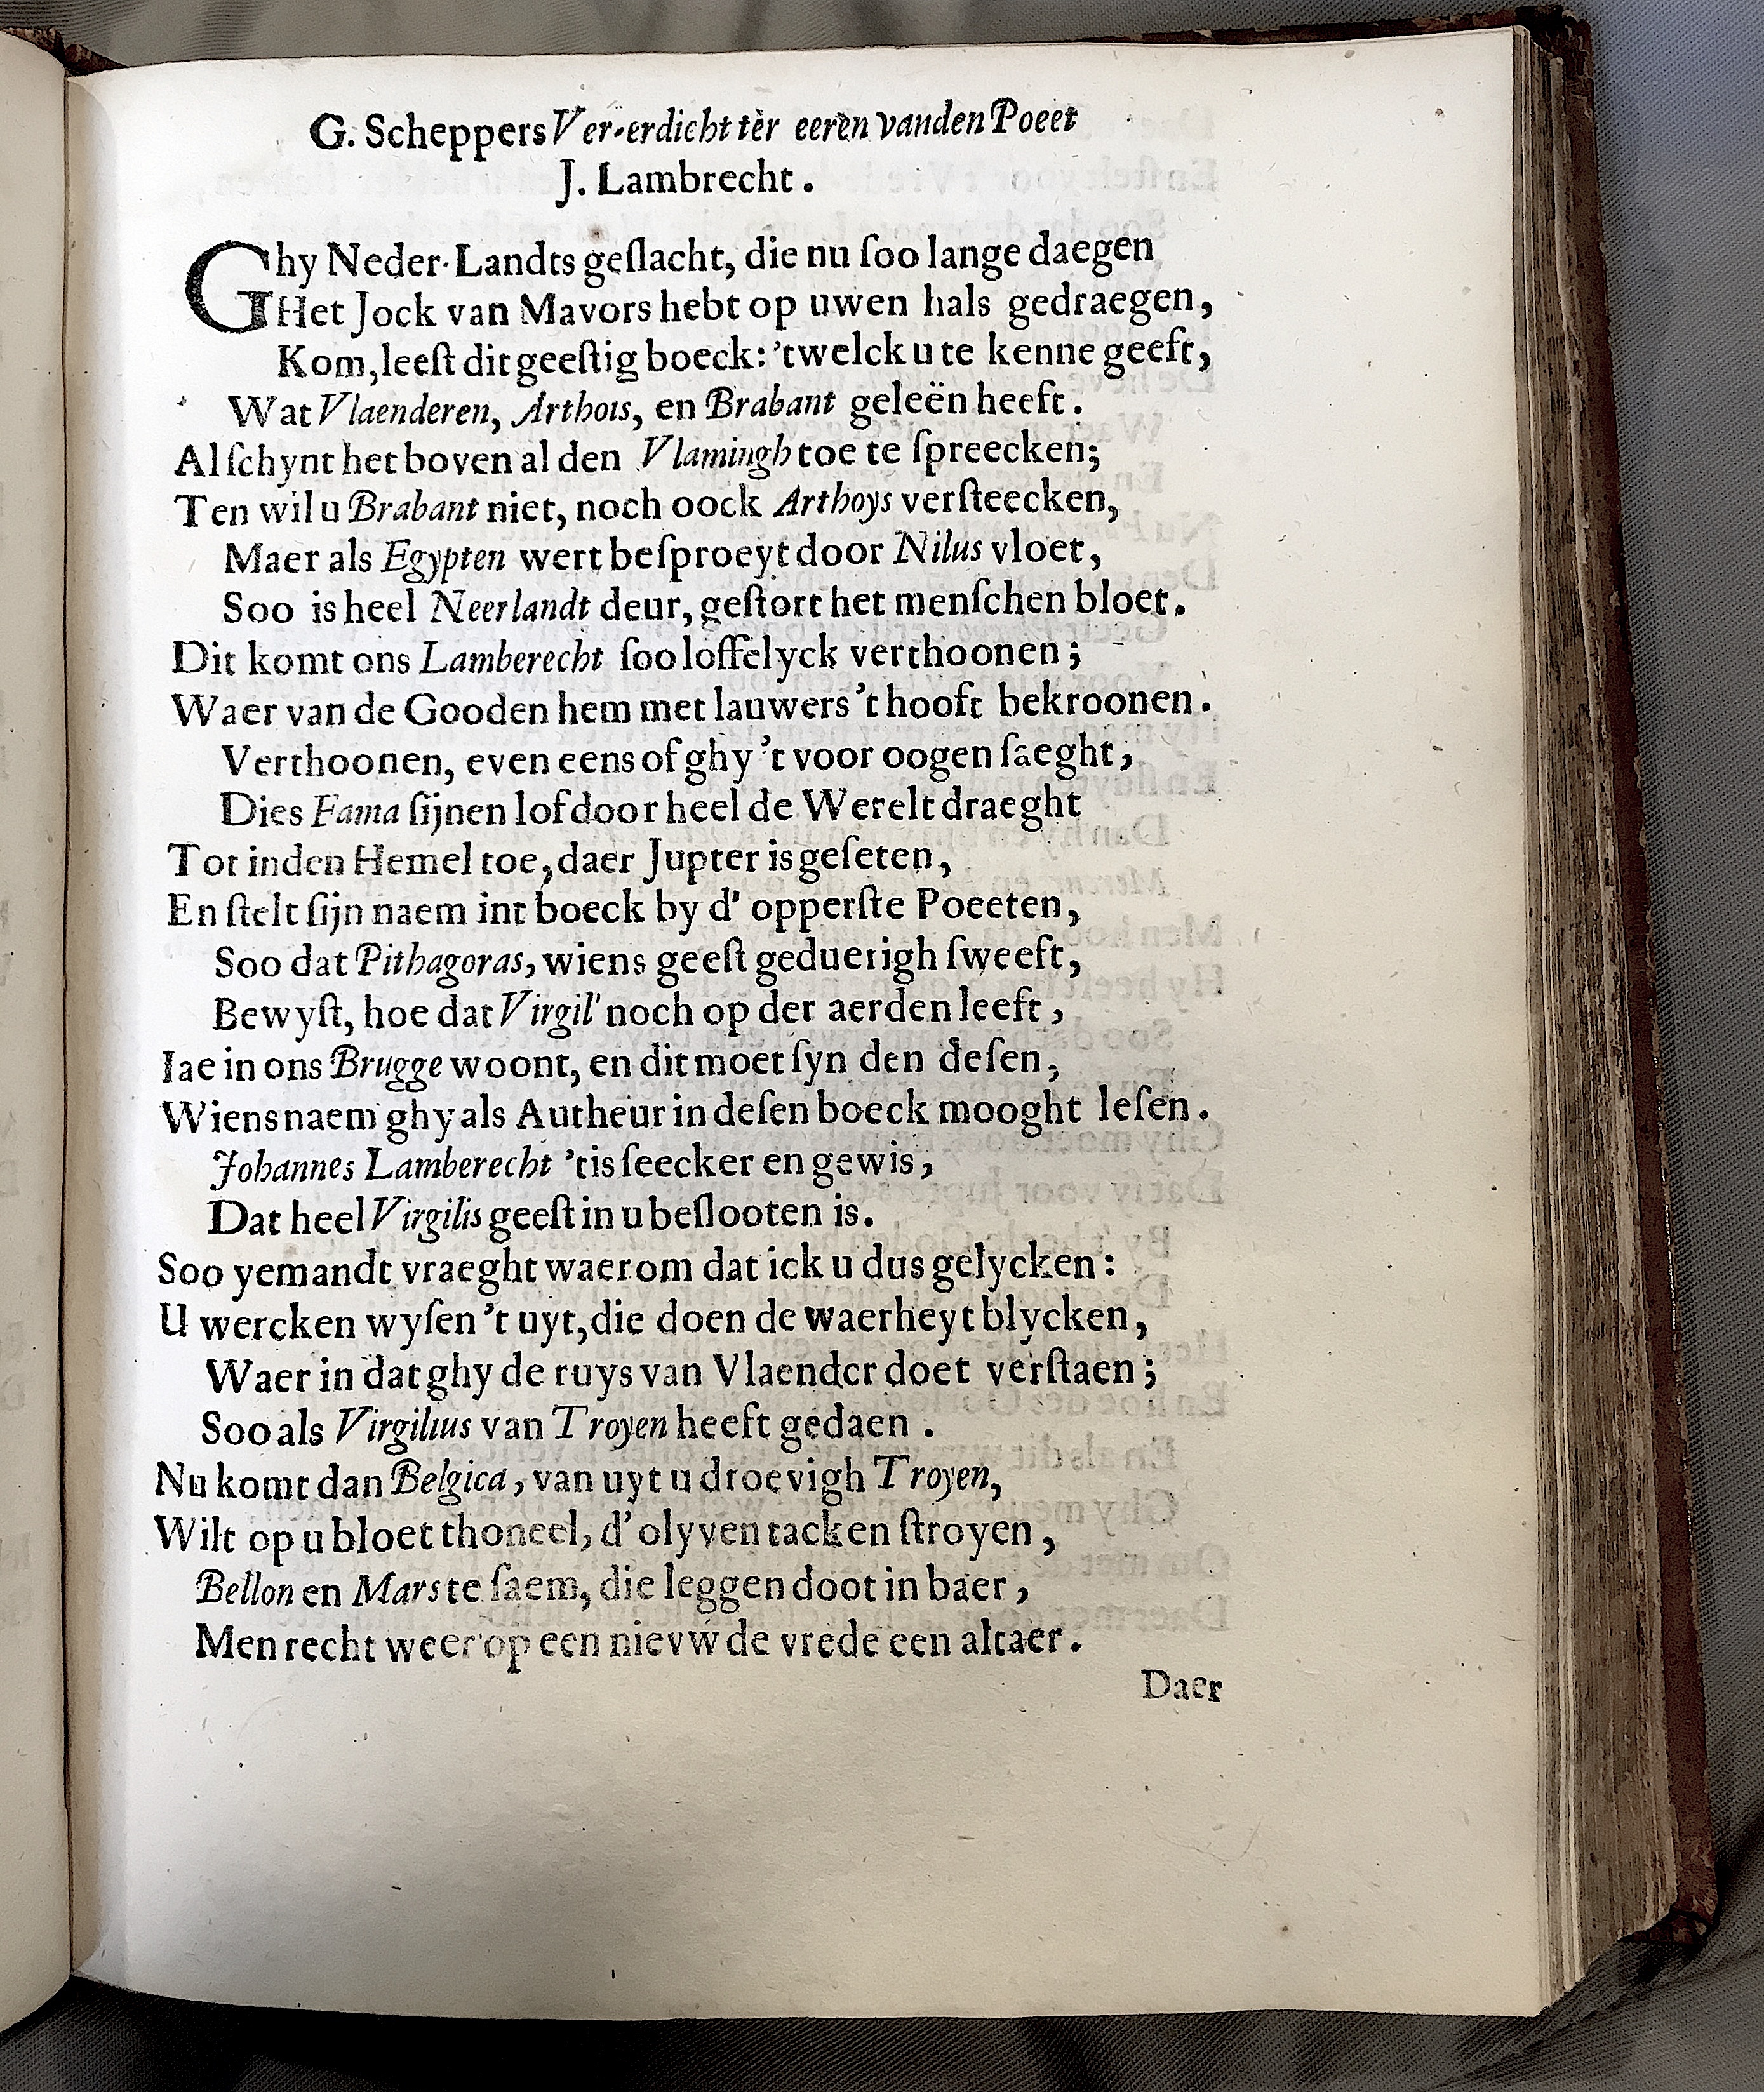 G. Scheppers Ver-erdicht ter eeren vanden Poeet
J. Lambrecht.
Ghy Neder-Landts geſlacht, die nu ſoo lange daegen
Het Jock van Mavors hebt op uwen hals gedraegen,
Kom, leeſt dit geeſtig boeck: 'twelck u te kenne geeft,
Wat Vlaenderen, Arthois, en Brabant geleën heeft.
Al ſchynt het boven al den Vlamingh toe te ſpreecken;
Ten wil u Brabant niet, noch oock Arthoys verſteecken,
Maer als Egypten wert beſproeyt door Nilus vloet,
Soo is heel Neerlandt deur, geſtort het menſchen bloet.
Dit komt ons Lamberecht ſoo loffelyck verthoonen;
Waer van de Gooden hem met lauwers 't hooft bekroonen.
Verthoonen, even eens of ghy 't voor oogen ſaeght,
Dies Fama ſijnen lof door heel de Werelt draeght
Tot inden Hemel toe, daer Jupter is geſeten,
En ſtelt ſijn naem int boeck by d' opperſte Poeeten,
Soo dat Pithagoras, wiens geeſt geduerigh ſweeft,
Bewyſt, hoe dat Virgil' noch op der aerden leeft,
Iae in ons Brugge woont, en dit moet ſyn den deſen,
Wiens naem ghy als Autheur in deſen boeck mooght leſen.
Johannes Lamberecht 'tis ſeecker en gewis,
Dat heel Virgilis geeſt in u beſlooten is.
Soo yemandt vraeght waerom dat ick u dus gelycken:
U wercken wyſen 't uyt, die doen de waerheyt blycken,
Waer in dat ghy de ruys van Vlaender doet verſtaen;
Soo als Virgilius van Troyen heeft gedaen.
Nu komt dan Belgica, van uyt u droevigh Troyen,
Wilt op u bloet thoneel, d'olyven tacken ſtroyen,
Bellon en Mars te ſaem, die leggen doot in baer,
Men recht weer op een nievw de vrede een altaer.
Daer